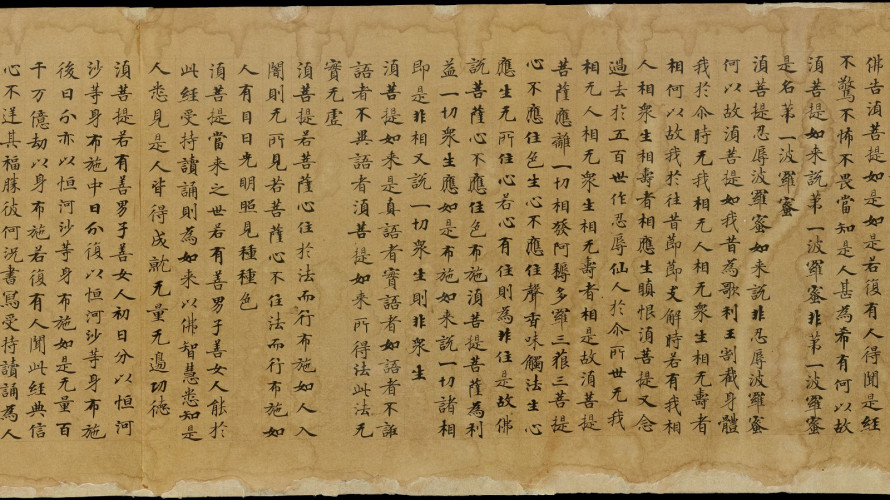 佛告湏菩提如是如是若復有人得聞是経
不驚不怖不畏當知是人甚為希有何以故
湏菩提如来說第一波羅蜜非第一波羅蜜
是名第一波羅蜜
湏菩提忍辱波羅蜜如来說非忍辱波羅蜜
何以故湏菩提如我昔為歌利王割截身體
我於尒時无我相无人相无衆生相无壽者
相何以故我於往昔節節支解時若有我相
人相衆生相壽者相應生瞋恨湏菩提又念
過去於五百世作忍辱仙人於尒所世无我
相无人相无衆生相无壽者相是故湏菩提
菩薩應離一切相發阿耨多羅三藐三菩提
心不應住色生心不應住聲香味觸法生心
應生无所住心若心有住則為非住是故佛
說菩薩心不應住色布施湏菩提菩薩為利
益一切衆生應如是布施如来說一切諸相
即是非相又說一切衆生則非衆生
湏菩提如来是真語者實語者如語者不誑
語者不異語者湏菩提如来所得法此法无
實无虛
湏菩提若菩薩心住於法而行布施如人入
闇則无所見若菩薩心不住法而行布施如
人有目日光明照見種種色
湏菩提當来之世若有善男子善女人能於
此経受持讀誦則為如来以佛智慧悉知是
人悉見是人皆得成就无量无邊功德
湏菩提若有善男子善女人初日分以恒河
沙等身布施中日分復以恒河沙等身布施
後日分亦以恒河沙等身布施如是无量百
千万億劫以身布施若復有人聞此経典信
心不逆其福勝彼何況書寫受持讀誦為人